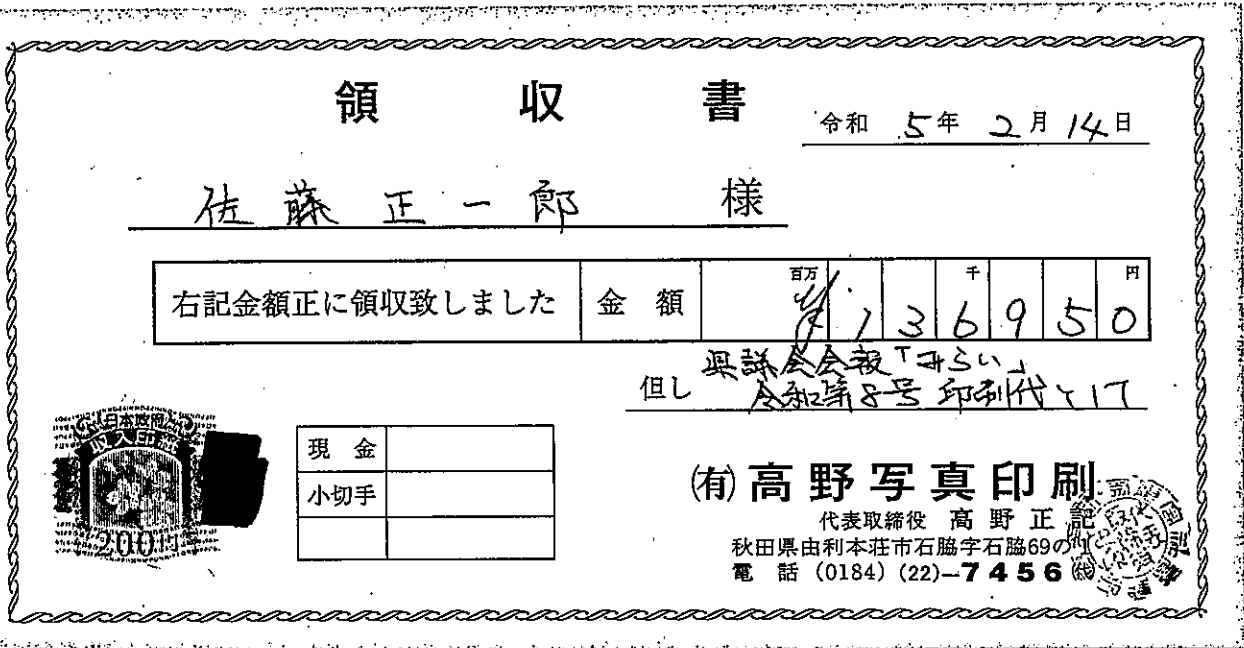 領収書
令和 5年 2月 14日
佐藤正一郎 様
右記金額正に領収致しました 金額 百万 千 円
¥136950
県議会会報「みらい」
但し 令和第8号 印刷代として
日本政府
収入印紙
200円
現金
小切手
(有)高野写真印刷
代表取締役 高野正記
秋田県由利本荘市石脇字石脇69の1
電話 (0184) (22)-7456